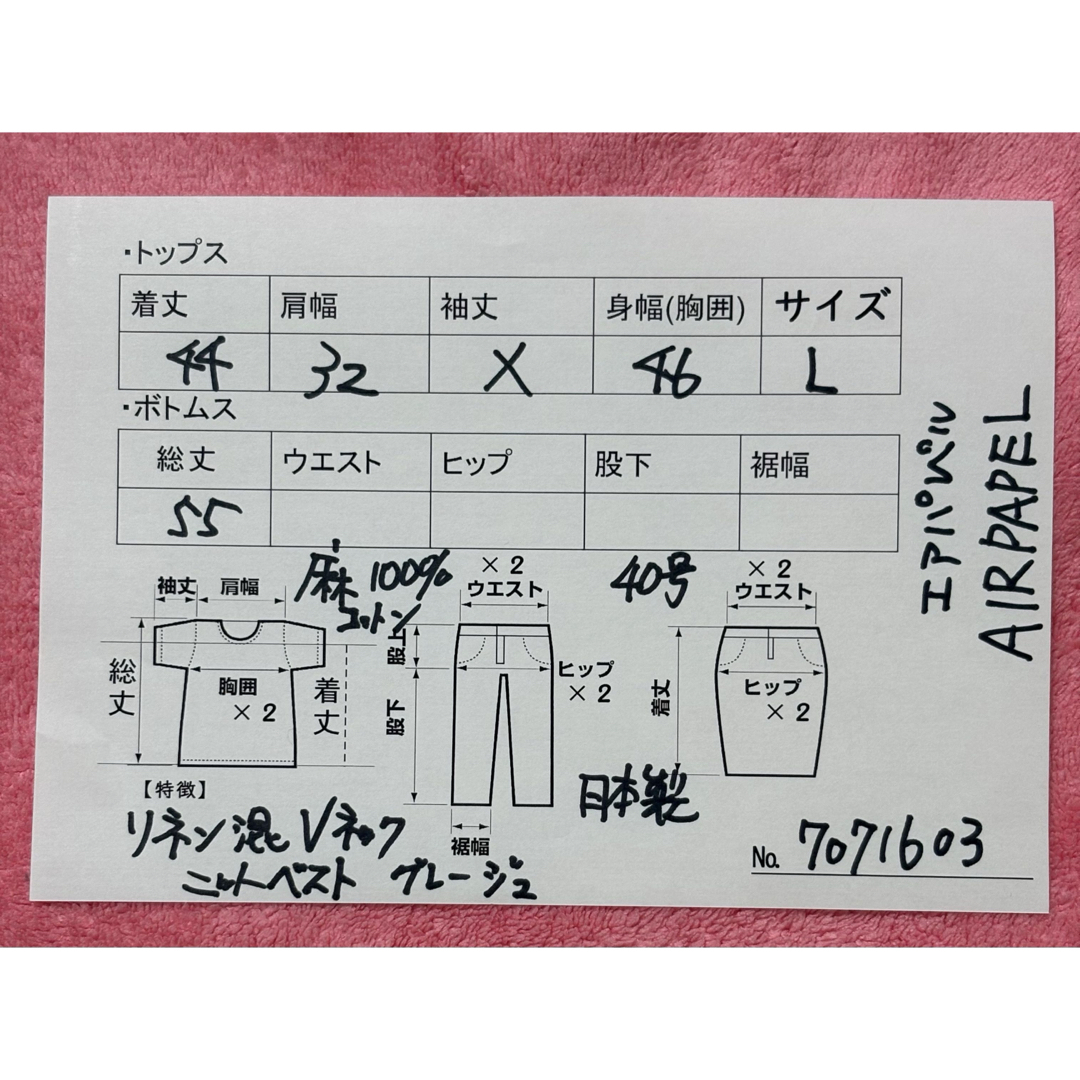 ・トップス
着丈 肩幅 袖丈 身幅(胸囲) サイズ
44 32 X 46 L
・ボトムス
総丈 ウエスト ヒップ 股下 裾幅
55
エアパペル
AIRPAPEL
麻 100%
コットン
40号
袖丈 肩幅
総丈
胸囲
×2
着丈
×2
ウエスト
股上
股下
ヒップ
×2
裾幅
×2
ウエスト
着丈
ヒップ
×2
【特徴】
リネン混 Vネック
ニットベスト グレージュ
日本製
No. 7071603